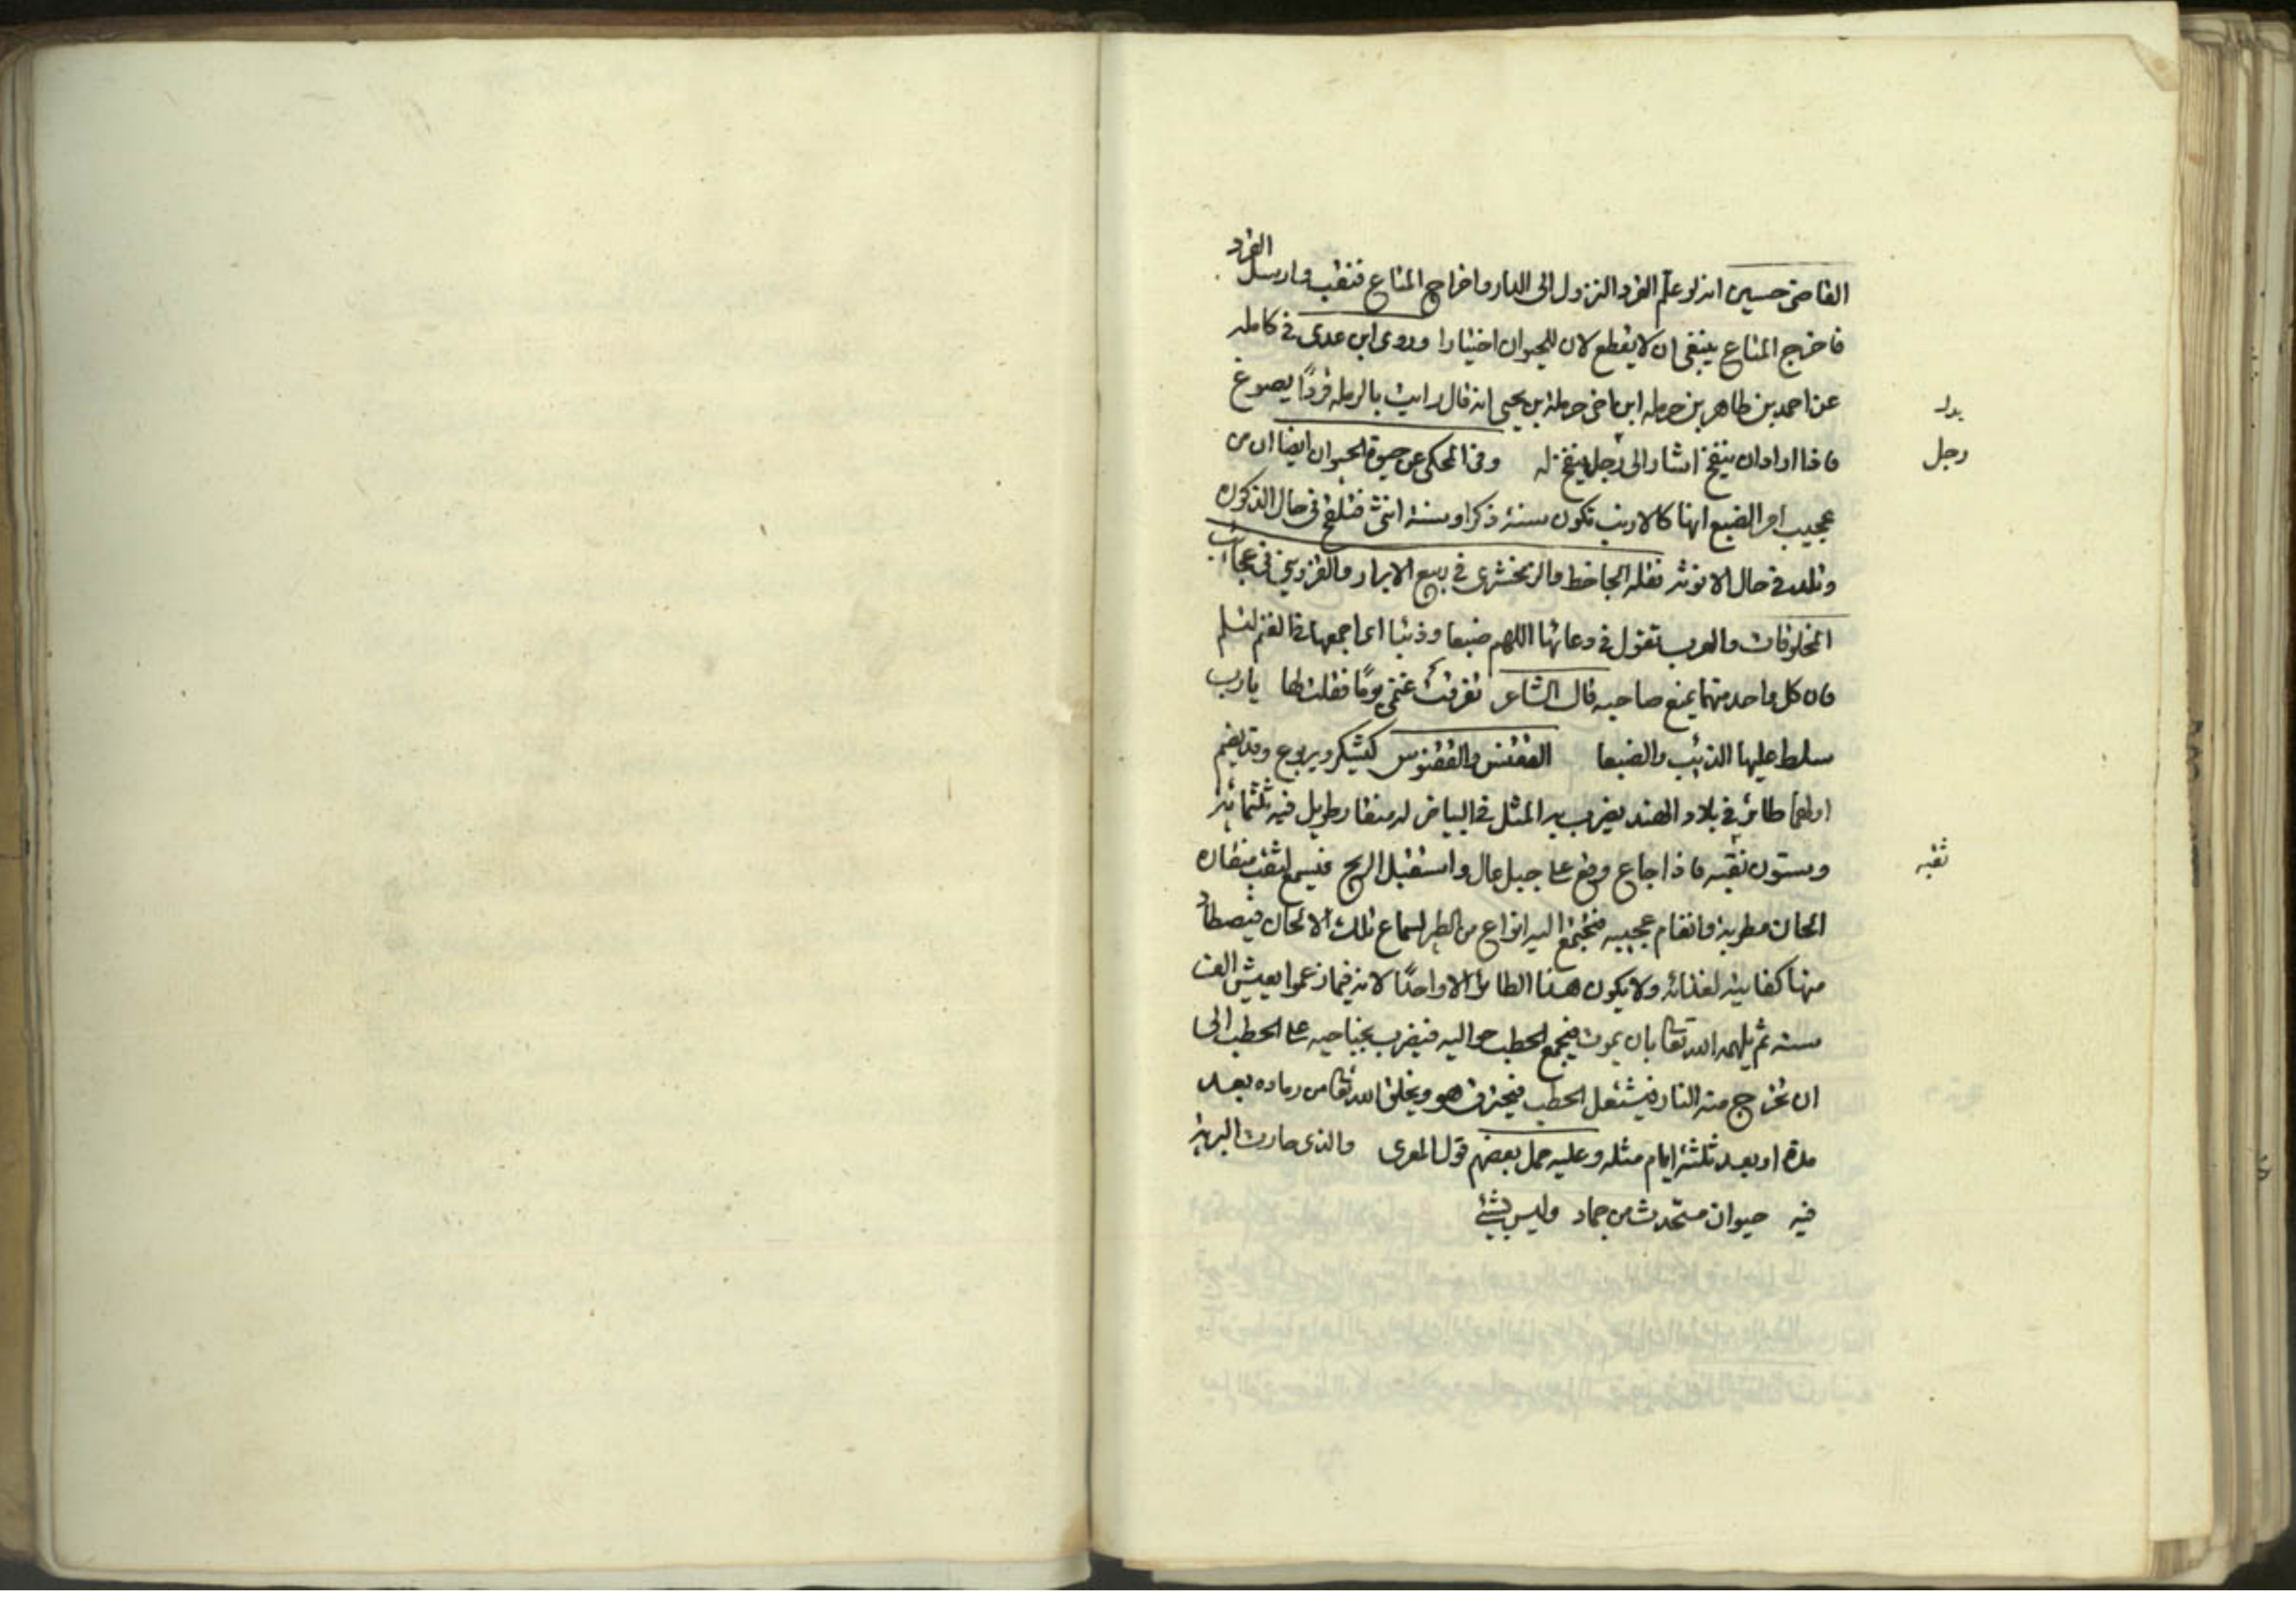 القاضى حسين انه لو علم القرد النزول الى الدار واخراج المتاع فنقب وارسل القرد
فاخرج المتاع ينبغى ان لا يقطع لان للحيوان اختيارا وروى ابن عدى فى كامله
عن احمد بن طاهر بن حرمله ابن اخى حرملة بن يحيى انه قال رايت بالرمله قردًا يصوغ
فاذا اراد ان ينفخ اشار الى رجل ينفخ له وفى المحكى عن حيوة الحيوان ايضا ان من
رجل
عجيب امر الضبع انها كالارنب تكون سنة ذكرا وسنة انثى فتلقح فى حال الذكوره
وتلد فى حال الانوثة نقله الجاحظ والزمخشرى فى ربيع الابرار والقزوينى فى عجائب
المخلوقات والعرب تقول فى دعائها اللهم ضبعا وذئبا اى اجمعها فى الغنم لتسلم
فان كل واحد منهما يمنع صاحبه قال الشاعر تفرقت غنمى يومًا فقلت لها يا رب
سلط عليها الذئب والضبعا الققنس والققنوس كيشكر ويربوع وقد يضم
اولهما طائر فى بلاد الهند يضرب به المثل فى البياض له منقار طويل فيه ثلثمائة
وستون ثقبه فاذا جاع وقع على جبل عال واستقبل الريح فيسمع لثقب منقاره
ثقبه
الحان مطربة وانغام عجيبه فيجتمع اليه انواع من الطير لسماع تلك الالحان فيصطاد
منها كفايته لغذائه ولا يكون هذا الطائر الا واحدًا لانه فيما زعموا يعيش الف
سنه ثم يلهمه الله تعا بان يموت فيجمع الحطب حواليه فيضرب بجناحيه على الحطب الى
ان تخرج منه النار فيشتعل الحطب فيحترق هو ويخلق الله تعا من رماده بعد
مدة او بعد ثلثة ايام مثله وعليه حمل بعضهم قول المعرى والذى حارت البرية
فيه حيوان مستحدث من جماد وليس بشئ